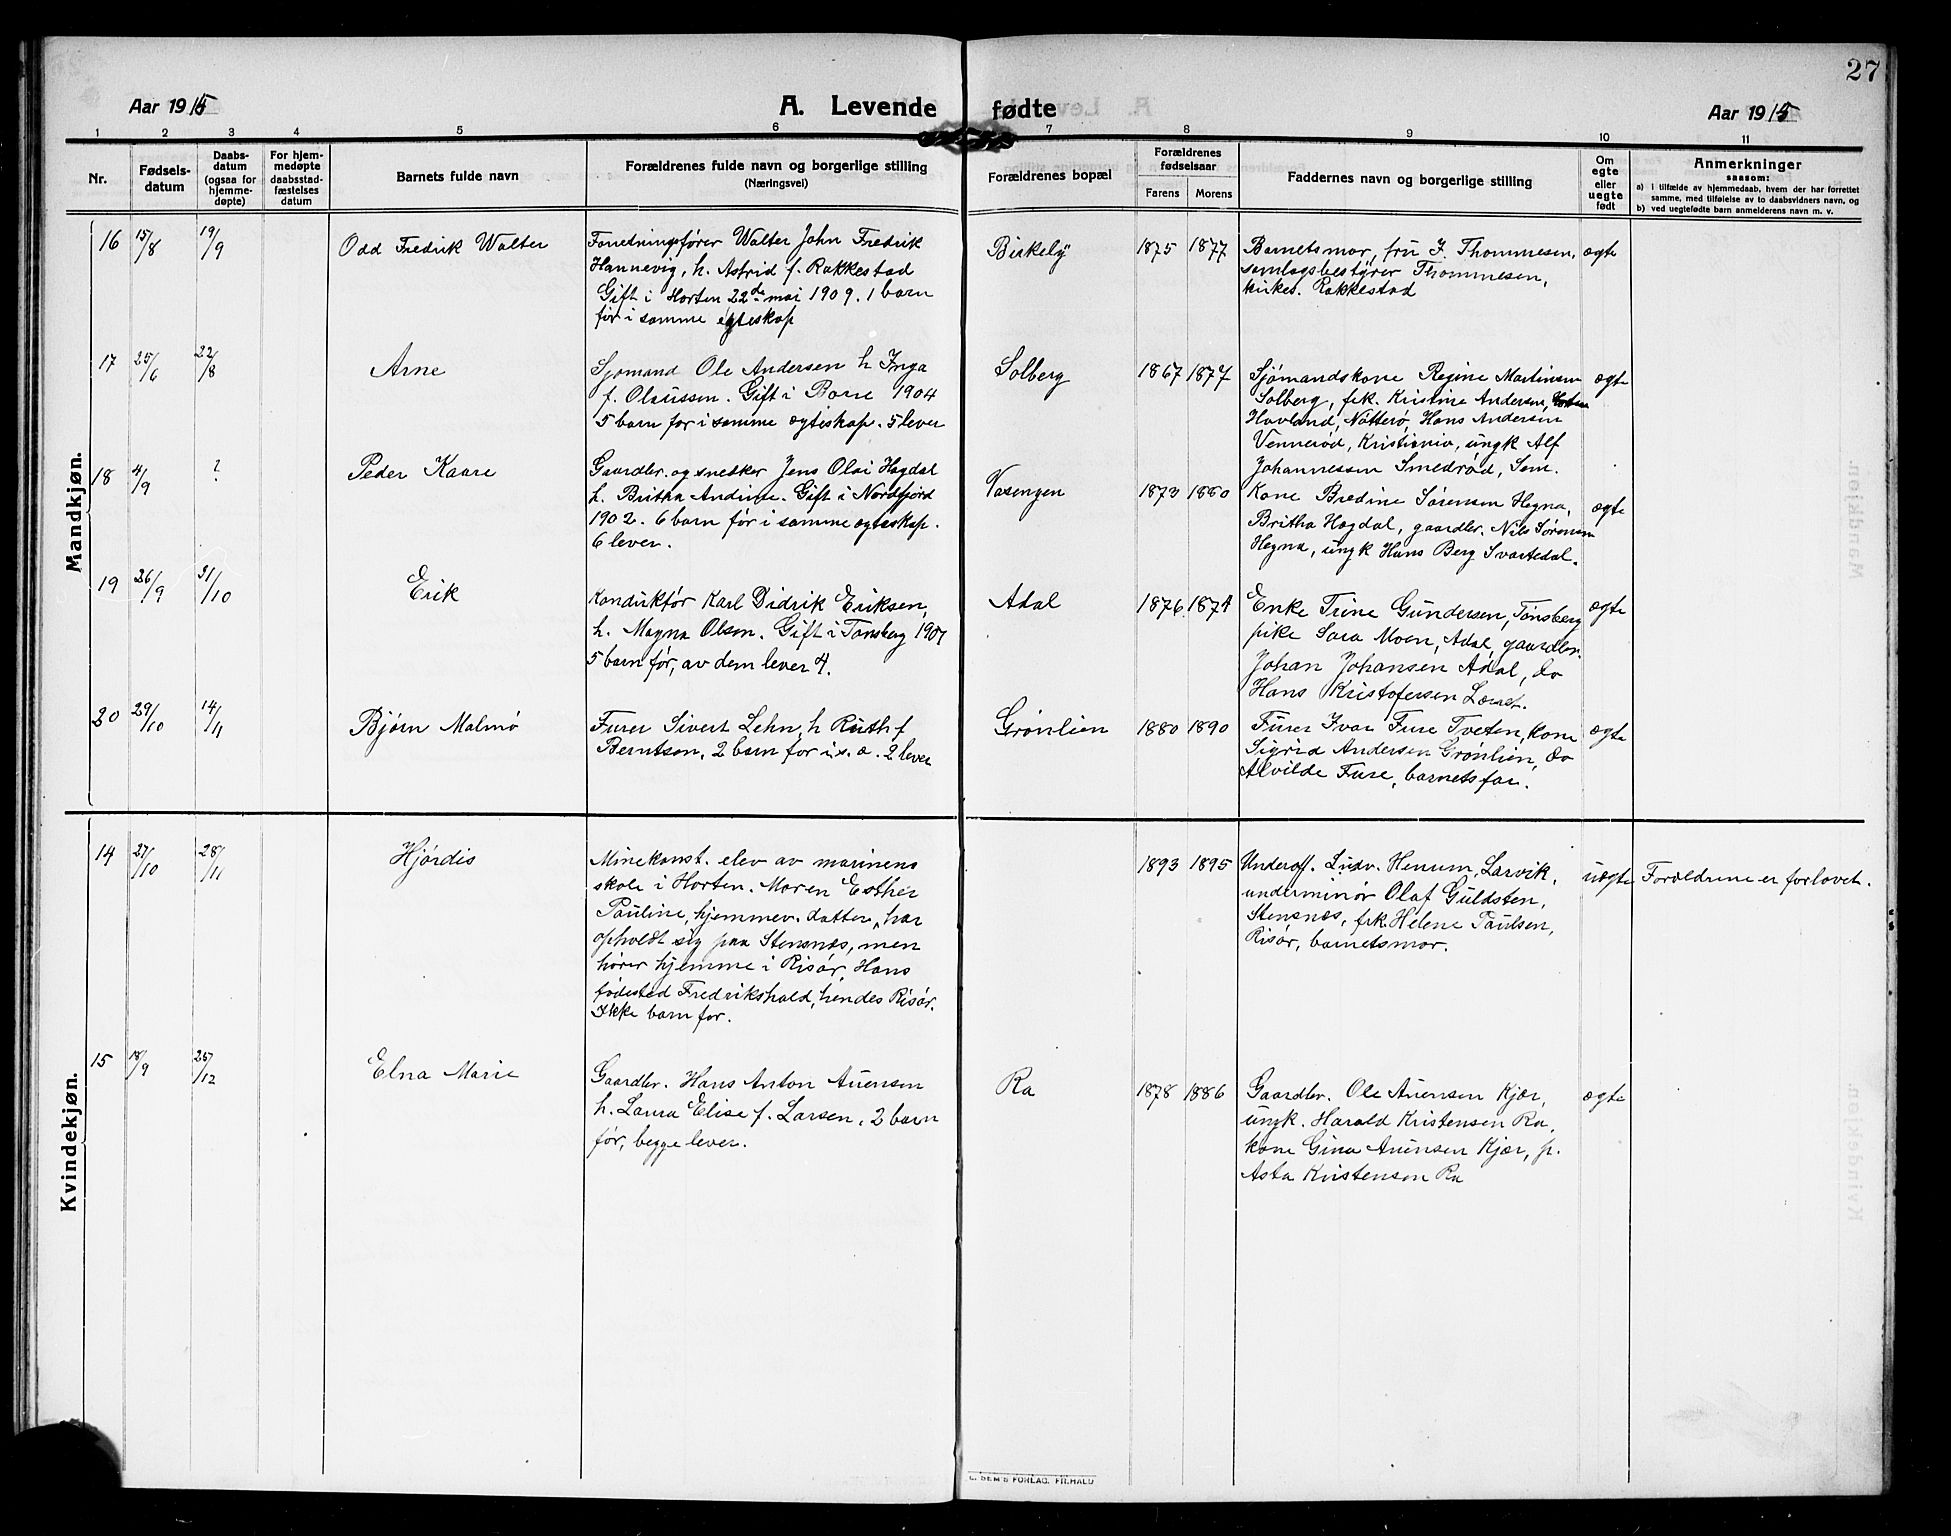 27
Aar 1915
A. Levende fødte
Aar 1915
1 2 3 4 5 6 7 8 9 10 11
Nr.
Fødsels-
datum
Daabs-
datum
(ogsaa for
hjemme-
døpte)
For hjem-
medøpte
daabsstad-
fæstelses
datum
Barnets fulde navn
Forældrenes fulde navn og borgerlige stilling
(Næringsvei)
Forældrenes bopæl
Forældrenes
fødselsaar
Farens Morens
Faddernes navn og borgerlige stilling
Om
egte
eller
uegte
født
Anmerkninger
saasom:
a) I tilfælde av hjemmedaab, hvem der har forrettet
samme, med tilføielse av to daabsvidners navn, og
b) ved uegtefødte barn anmelderens navn m. v.
Mandkjøn.
16 15/8 19/9 Odd Fredrik Walter
Forretningsfører Walter John Fredrik
Hannevig, h. Astrid f. Rakkestad
Gift i Horten 22de mai 1909. 1 barn
før i samme egteskap
Birkely 1875 1877
Barnetsmor, fru J. Thommesen,
samlagsbestyrer Thommesen,
kirkes. Rakkestad
ægte
17 25/6 22/8 Arne
Sjømand Ole Andersen h Inga
f. Olaussen. Gift i Borre 1904
5 barn før i samme ægteskap. 5 lever
Solberg 1867 1877
Sjømandskone Regine Martinsen
Solberg, frk. Kristine Andersen,
Havland, Nøtterø, Hans Andersen
Vennerød, Kristiania, ungk Alf
Johannessen Smedrød, Sem.
ægte
18 4/9 ? Peder Kaare
Gaardbr. og snedker Jens Olai Hogdal
h. Britha Andrine. Gift i Nordfjord
1902. 6 barn før i samme egteskap.
6 lever.
Vasengen 1873 1880
Kone Bredine Sørensen Hegna,
Britha Hogdal, gaardbr. Nils Sørensen
Hegna, ungk Hans Berg Svartedal.
ægte
19 26/9 31/10 Erik
Konduktør Karl Didrik Eriksen,
h. Magna Olsen. Gift i Tønsberg 1907
5 barn før, av dem lever 4.
Adal 1876 1871
Enke Trine Gundersen, Tønsberg
pike Sara Moen, Adal, gaardbr.
Johan Johansen Adal, do
Hans Kristofersen
ægte
20 29/10 14/11 Bjørn Malmø
Furer Sivert Lehn, h Ruth f
Berntsen, 2 barn før i s. æ. 2 lever
Grønlien 1880 1890
Furer Ivar Fure Tveten, kone
Sigrid Andersen Grønlien, do
Alvilde Fure, barnetsfar.
ægte
Kvindekjøn.
14 27/10 28/11 Hjørdis
Minekonst. elev av marinens
skole i Horten. Moren Esther
Pauline, hjemmev. datter, har
opholdt sig paa Stensnæs, men
hører hjemme i Risør. Hans
fødested Fredrikshald, hendes Risør.
Ikke barn før.
1893 1895
Underoff. Ludv. Henum, Larvik,
underminør Olaf Guldsten,
Stensnæs, frk. Helene Paulsen,
Risør, barnetsmor.
uægte
Forældrene er forlovet.
15 18/9 25/12 Elna Marie
Gaardbr. Hans Anton Auensen
h. Laura Elise f. Larsen, 2 barn
før, begge lever.
Ra 1878 1886
Gaardbr. Ole Auensen Kjær,
ungk. Harald Kristensen Ra,
kone Gina Auensen Kjær, p.
Asta Kristensen Ra
ægte
E. SEM'S FORLAG, FR.HALD